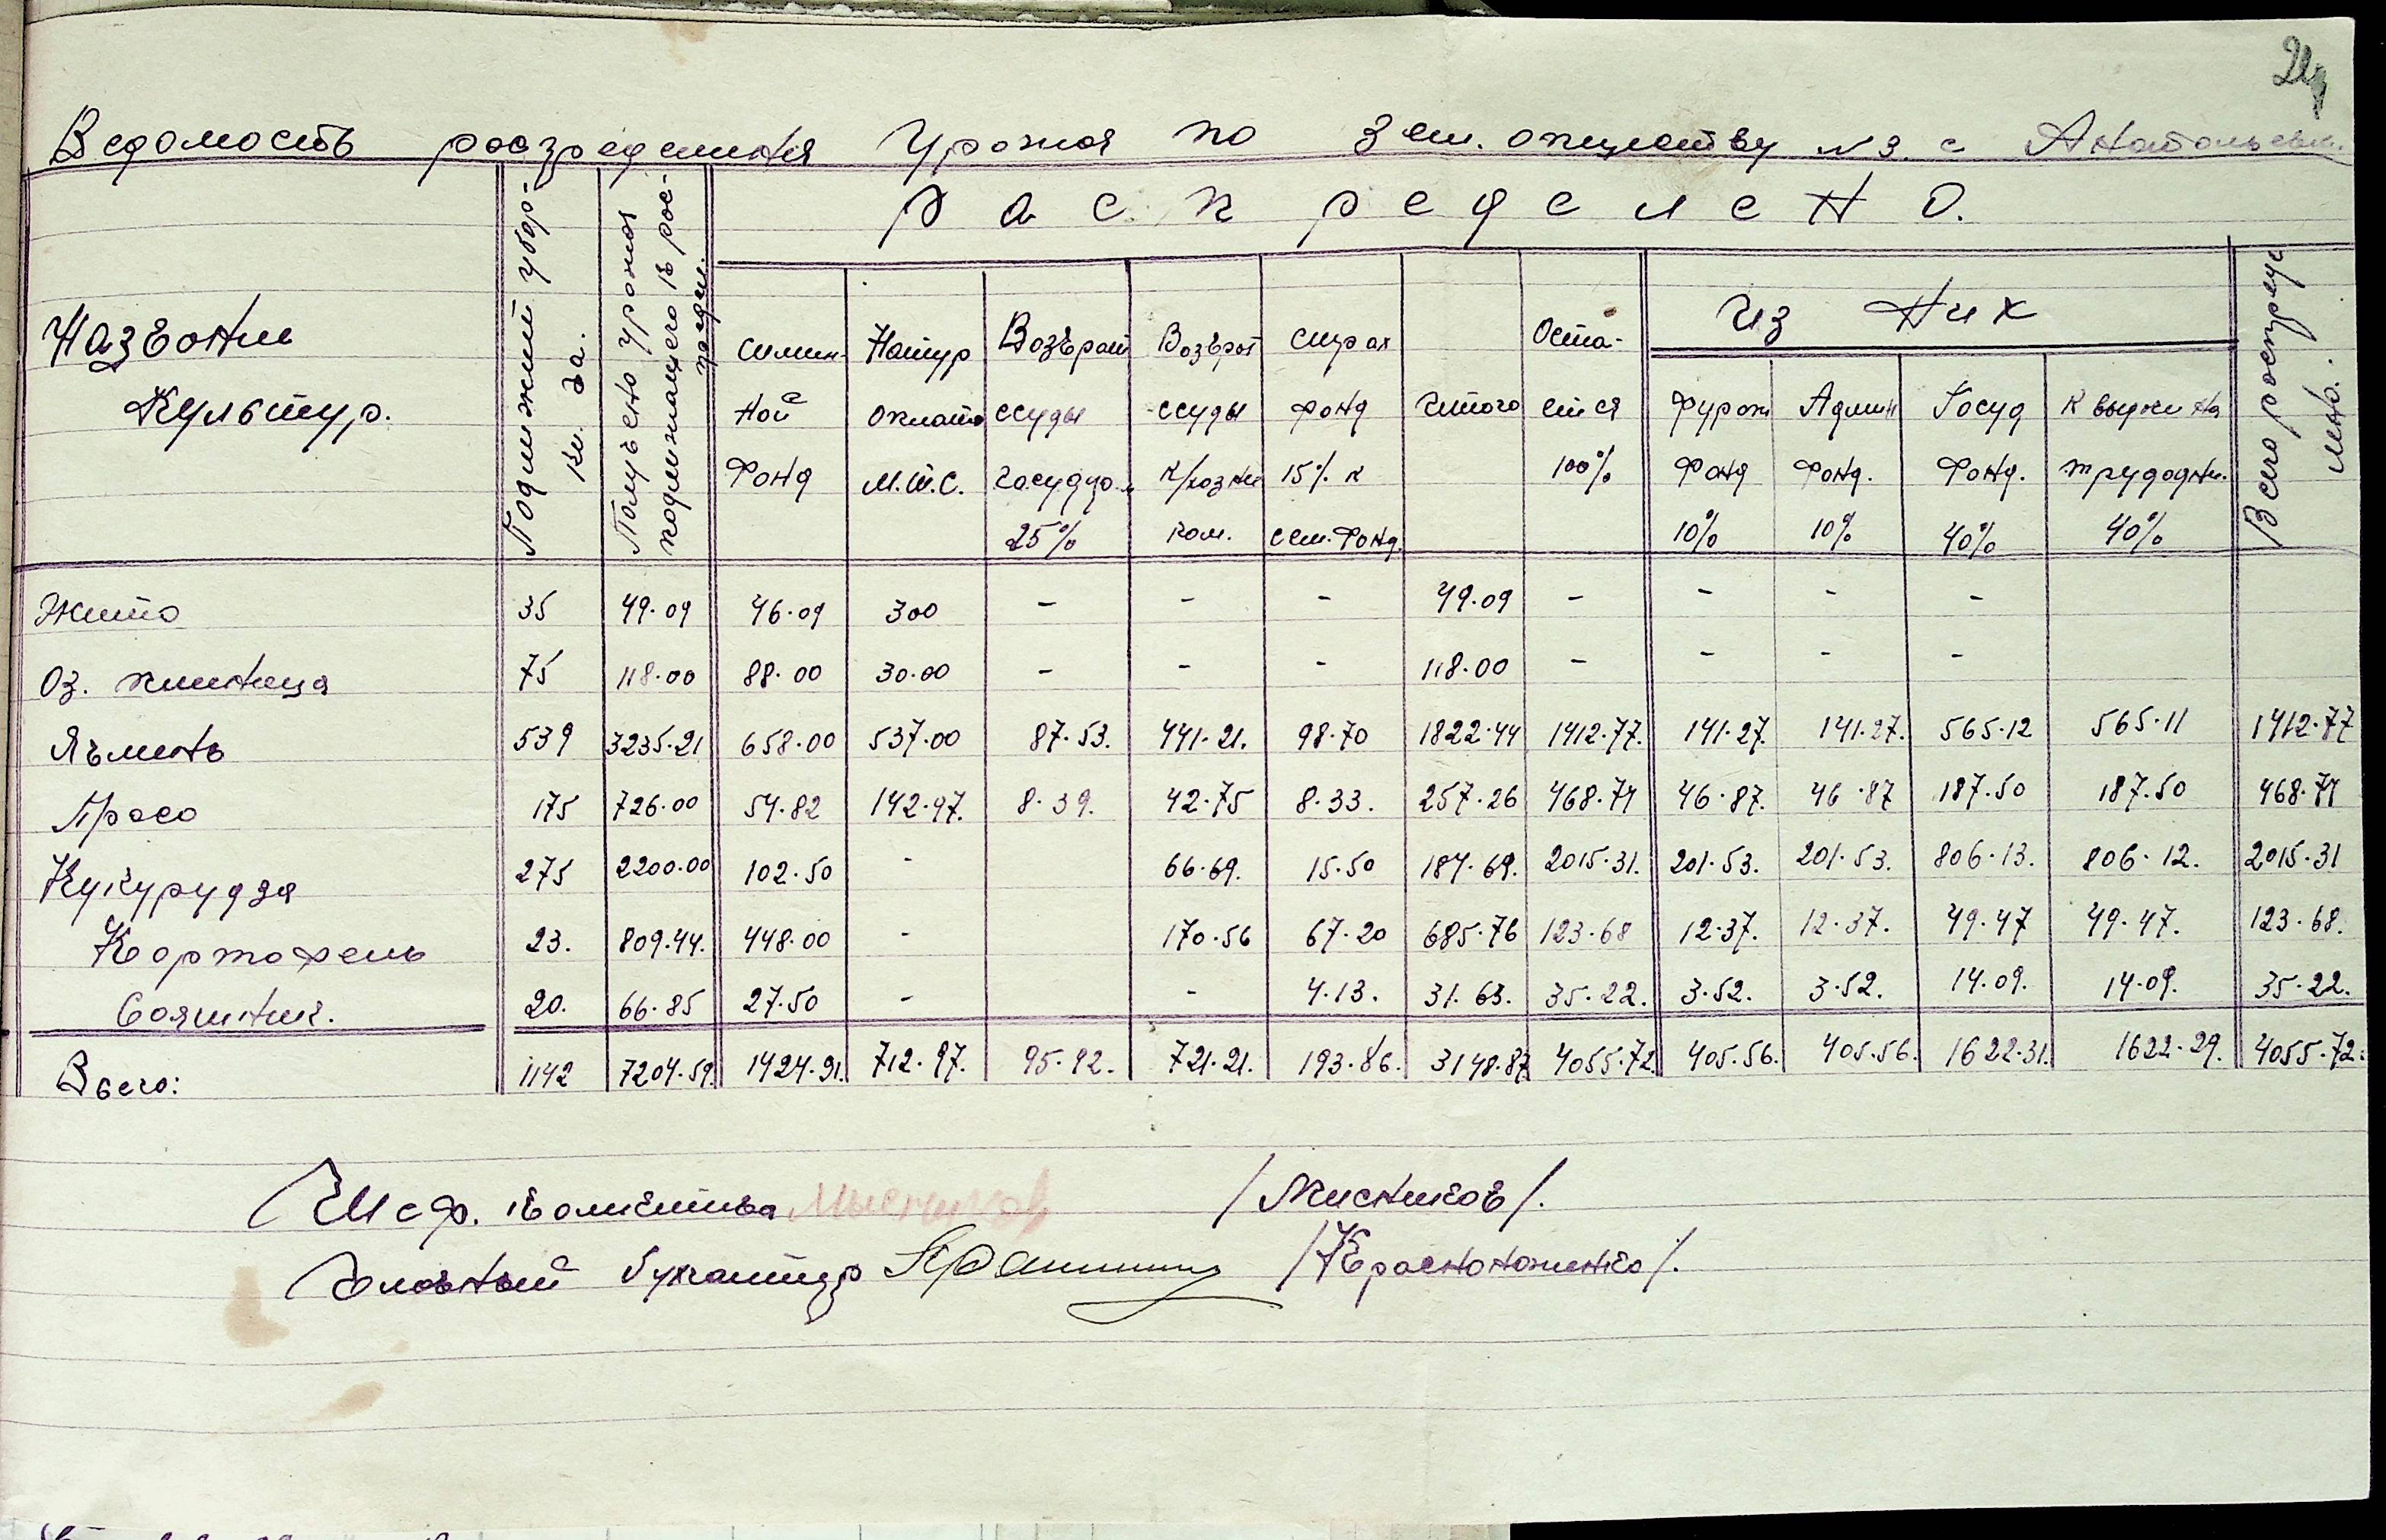 Ведомость роспределения Урожоя по Зем. опществу №3. с Анатольевк.
Роспределено.
Название Культур.
Подлижит убор-ки га.
Получено урожоя подлижащего к рос-предел.
Симин-ной Фонд
Натур оплата М.Т.С.
Возврат ссуды государ. 25%
Возврот ссуды К/хозни ком.
Страх Фонд 15% к сем. Фонд.
Итого
Оста-ётся 100%
Из них
Фураж Фонд 10%
Админ Фонд. 10%
Госуд Фонд. 40%
К выдаче на трудодни. 40%
Всего роспреде лено.
Жито 35 49.09 46.09 300 - - - 49.09 - - - -
Оз. пшеница 75 118.00 88.00 30.00 - - - 118.00 - - - -
Ячмень 539 3235.21 658.00 537.00 87.53. 441.21. 98.70 1822.44 1412.77. 141.27. 141.27. 565.12 565.11 1412.77
Просо 175 726.00 54.82 142.97. 8.39. 42.75 8.33. 257.26 468.74 46.87. 46.87 187.50 187.50 468.74
Кукурудза 275 2200.00 102.50 - 66.69. 15.50 184.69. 2015.31. 201.53. 201.53. 806.13. 806.12. 2015.31
Картофель 23. 809.44. 448.00 - 170.56 67.20 685.76 123.68 12.37. 12.37. 49.47 49.47. 123.68.
Сояшник. 20. 66.85 27.50 - - 4.13. 31.63. 35.22. 3.52. 3.52. 14.09. 14.09. 35.22.
Всего: 1142 7204.59. 1424.91. 712.97. 95.92. 721.21. 193.86. 3148.87 4055.72. 405.56. 405.56. 1622.31. 1622.29. 4055.72.
Шеф. хозяйства Мысников /Мисников/.
Головный бухгалтер /Красноноженко/.